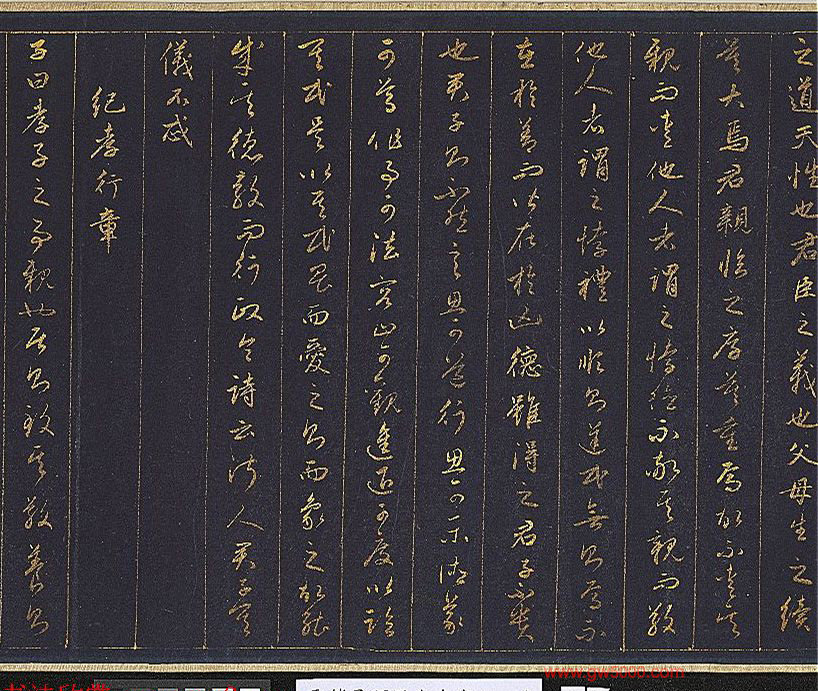 之道天性也君臣之義也父母生之續
莫大焉君親臨之厚莫重焉故不愛其
親而愛他人者謂之悖德不敬其親而敬
他人者謂之悖禮以順則逆民無則焉不
在於善而皆在於凶德雖得之君子不貴
也君子則不然言思可道行思可樂德義
可尊作事可法容止可觀進退可度以臨
其民是以其民畏而愛之則而象之故能
成其德教而行政令詩云淑人君子其
儀不忒
紀孝行章
子曰孝子之事親也居則致其敬養則